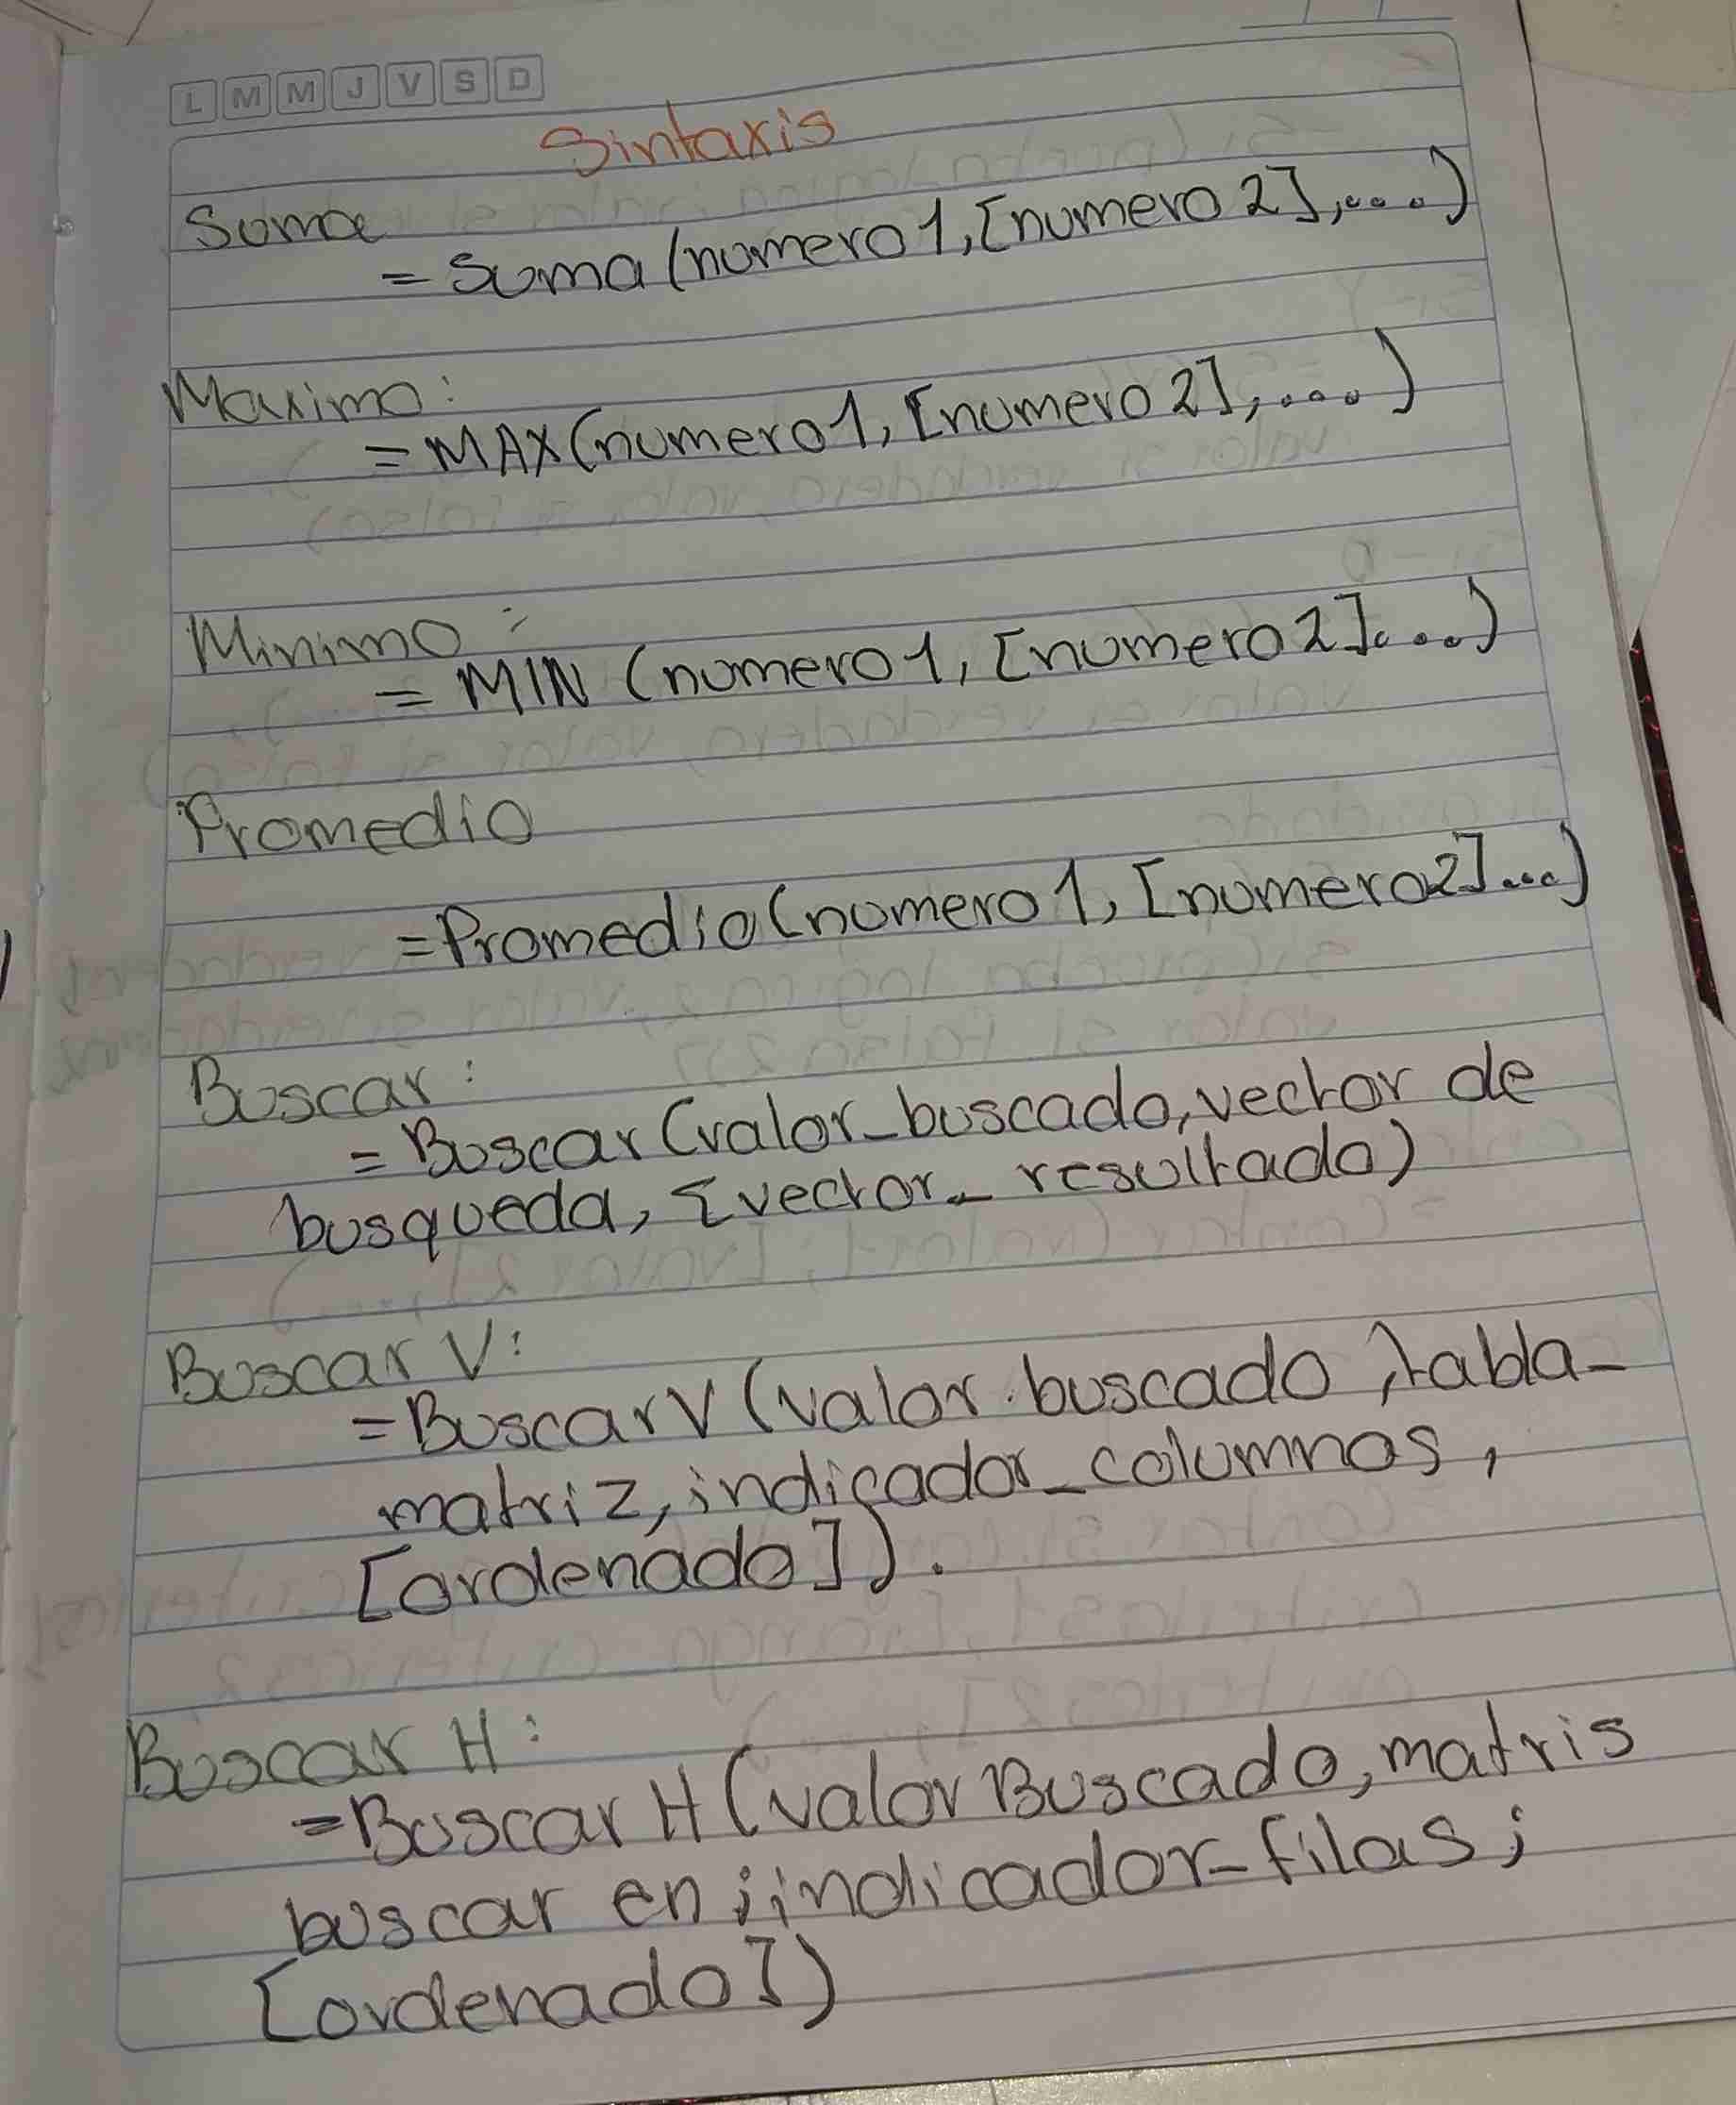 L M M J V S D
Sintaxis
Suma
= Suma (numero 1, [numero 2], ...)
Maximo:
= MAX (numero 1, [numero 2], ....)
Minimo :
= MIN (numero 1, [numero 2]. ...)
Promedio
= Promedio (numero 1, [numero2]...)
Buscar :
= Buscar (valor_buscado, vector de
busqueda, [vector_ resultado)
Buscar V:
= Buscar V (valor. buscado, tabla_
matriz, indicador_columnas,
[ordenado]).
Buscar H :
= Buscar H (valor Buscado, matris
buscar en; indicador_filas;
[ordenado])